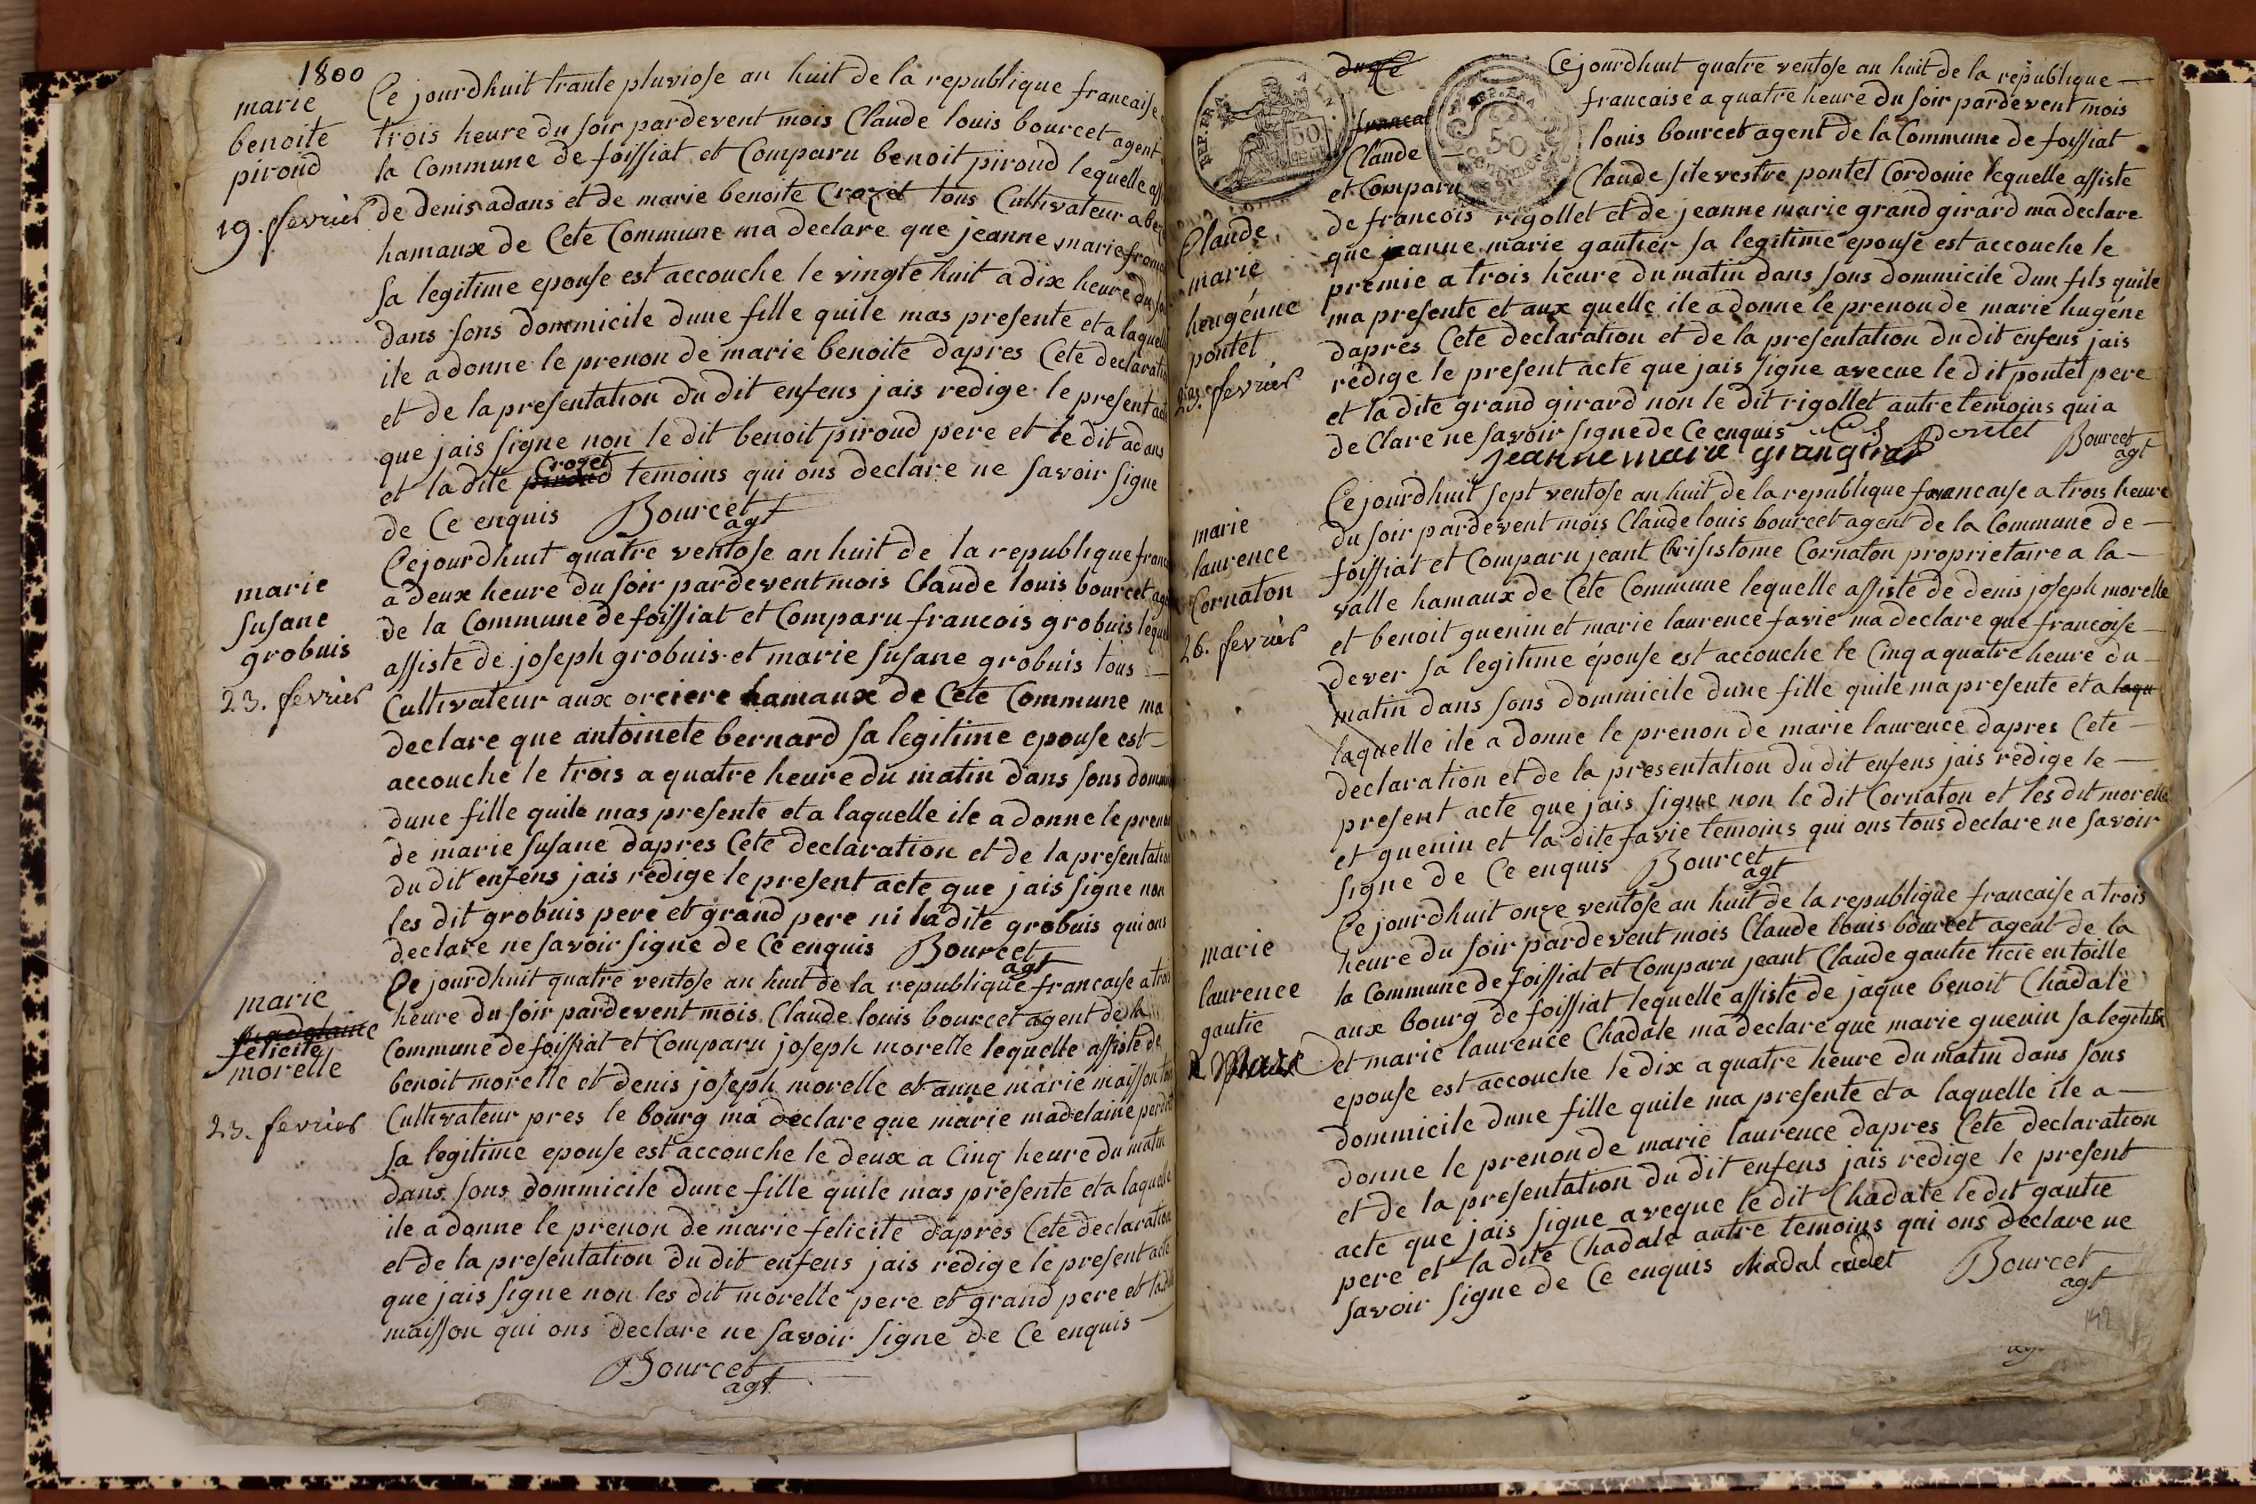 1800
marie
benoite
piroud
19. fevrier
Ce jourdhuit trante pluviose an huit de la republique francaise
trois heure du soir pardevent mois Claude louis bourcet agent
la Commune de foissiat et Comparu benoit piroud lequelle
de denis adans et de marie benoite Crozet tous Cultivateur a
hamaux de Cete Commune ma declare que jeanne marie
sa legitime epouse est accouche le vingte huit a dix heure du
dans sons dommicile dune fille quile mas presente et a laquelle
ile a donne le prenon de marie benoite dapres Cete declaration
et de la presentation du dit enfens jais redige le present
que jais signe non le dit benoit piroud pere et le dit adans
et la dite piroud Crozet temoins qui ons declare ne savoir signe
de Ce enquis Bourcet
agt
marie
susane
grobuis
23. fevrier
Ce jourdhuit quatre ventose an huit de la republique
a deux heure du soir pardevent mois Claude louis bourcet
de la Commune de foissiat et Comparu francois grobuis
assiste de joseph grobuis et marie susane grobuis tous
Cultivateur aux orciere hamaux de Cete Commune ma
declare que antoinete bernard sa legitime epouse est
accouche le trois a quatre heure du matin dans sons
dune fille quile mas presente et a laquelle ile a donne le
de marie susane dapres Cete declaration et de la presentation
du dit enfens jais redige le present acte que jais signe non
les dit grobuis pere et grand pere ni ladite grobuis qui ons
declare ne savoir signe de Ce enquis Bourcet
agt
marie
madelaine
felicite
morelle
23. fevrier
Ce jourdhuit quatre ventose an huit de la republique francaise a
heure du soir pardevent mois Claude louis bourcet agent de la
Commune de foissiat et Comparu joseph morelle lequelle assiste de
benoit morelle et denis joseph morelle et anne marie maisson
Cultivateur pres le bourg ma declare que marie madelaine
sa legitime epouse est accouche le deux a Cinq heure du matin
dans sons dommicile dune fille quile mas presente et a laquelle
ile a donne le prenon de marie felicite dapres Cete declaration
et de la presentation du dit enfens jais redige le present acte
que jais signe non les dit morelle pere et grand pere et
maisson qui ons declare ne savoir signe de Ce enquis
Bourcet
agt
REP. FRA.
50
REP. FRA
50
Centimes
Claude
marie
heugénne
pontet
23. fevrier
Ce jourdhuit quatre ventose an huit de la republique
francaise a quatre heure du soir pardevent mois
Claude louis bourcet agent de la Commune de foissiat
et Comparu Claude silevestre pontet Cordonie lequelle assiste
de francois rigollet et de jeanne marie grand girard ma declare
que jeanne marie gautier sa legitime epouse est accouche le
premie a trois heure du matin dans sons dommicile dun fils quile
ma presente et aux quelle ile a donne le prenon de marie hugéne
dapres Cete declaration et de la presentation du dit enfens jais
redige le present acte que jais signe avecue le dit pontet pere
et la dite grand girard non le dit rigollet autre temoins qui a
de Clare ne savoir signe de Ce enquis Pontet
jeanne marie Bourcet
agt
marie
laurence
Cornaton
26. fevrier
Ce jourdhuit sept ventose an huit de la republique francaise a trois heure
du soir pardevent mois Claude louis bourcet agent de la Commune de
foissiat et Comparu jeant Crisistome Cornaton proprietaire a la
valle hamaux de Cete Commune lequelle assiste de denis joseph morelle
et benoit guenin et marie laurence favie ma declare que francoise
dever sa legitime épouse est accouche le Cinq a quatre heure du
matin dans sons dommicile dune fille quile ma presente et a laqu
laquelle ile a donne le prenon de marie laurence dapres Cete
declaration et de la presentation du dit enfens jais redige le
present acte que jais signe non le dit Cornaton et les dit morelle
et guenin et la dite favie temoins qui ons tous declare ne savoir
signe de Ce enquis Bourcet
agt
marie
laurence
gautie
2 Mars
Ce jourdhuit onze ventose an huit de la republique francaise a trois
heure du soir pardevent mois Claude louis bourcet agent de la
la Commune de foissiat et Comparu jeant Claude gautie ticie en toille
aux bourg de foissiat lequelle assiste de jaque benoit Chadale
et marie laurence Chadale ma declare que marie guenin sa legitime
epouse est accouche le dix a quatre heure du matin dans sons
dommicile dune fille quile ma presente et a laquelle ile a
donne le prenon de marie laurence dapres Cete declaration
et de la presentation du dit enfens jais redige le present
acte que jais signe aveque le dit Chadale le dit gautie
pere et la dite Chadale autre temoins qui ons declare ne
savoir signe de Ce enquis Chadal cadet Bourcet
agt
142